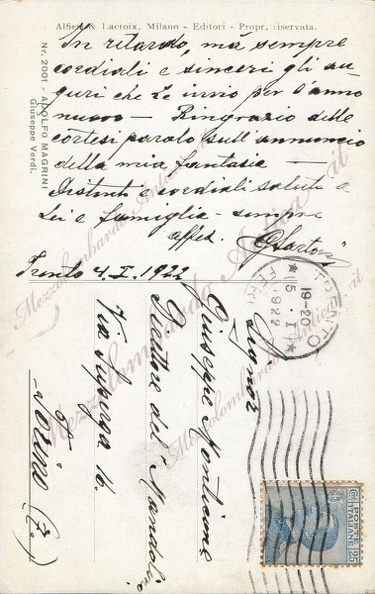 Alfieri & Lacroix, Milano - Editori - Propr. riservata.
Nr. 2001 - ADOLFO MAGRINI
Giuseppe Verdi.
In ritardo, ma sempre
cordiali e sinceri gli au-
guri che Le invio per l'anno
nuovo — Ringrazio delle
cortesi parole sull'annuncio
della mia fantasia —
Distinti e cordiali saluti a
Lei e famiglia - sempre
affez.
Trento 4. I. 1922
Signor
Giuseppe Monticone
Direttore del "Mandolino
Via Superga 16.
Torino
TRENTO
19-20
5. I
1922
POSTE
ITALIANE
CENT 25
Mezzolombardo Antica.it
Mezzolombardo Antica.it